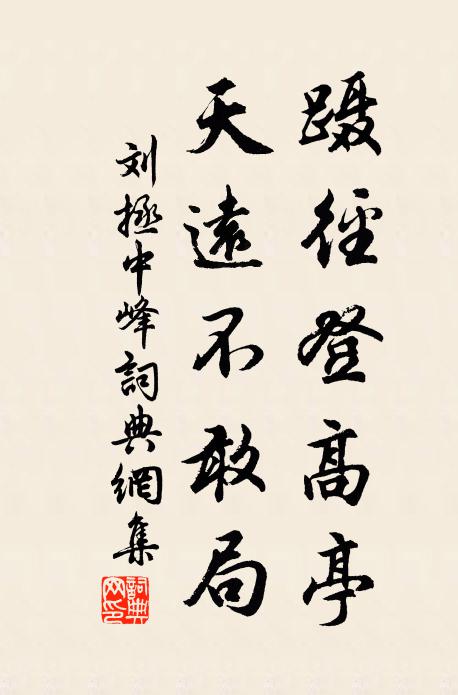 蹑径登高亭
天遠不敢局
刘拯中峰詞典網集
詞典網印